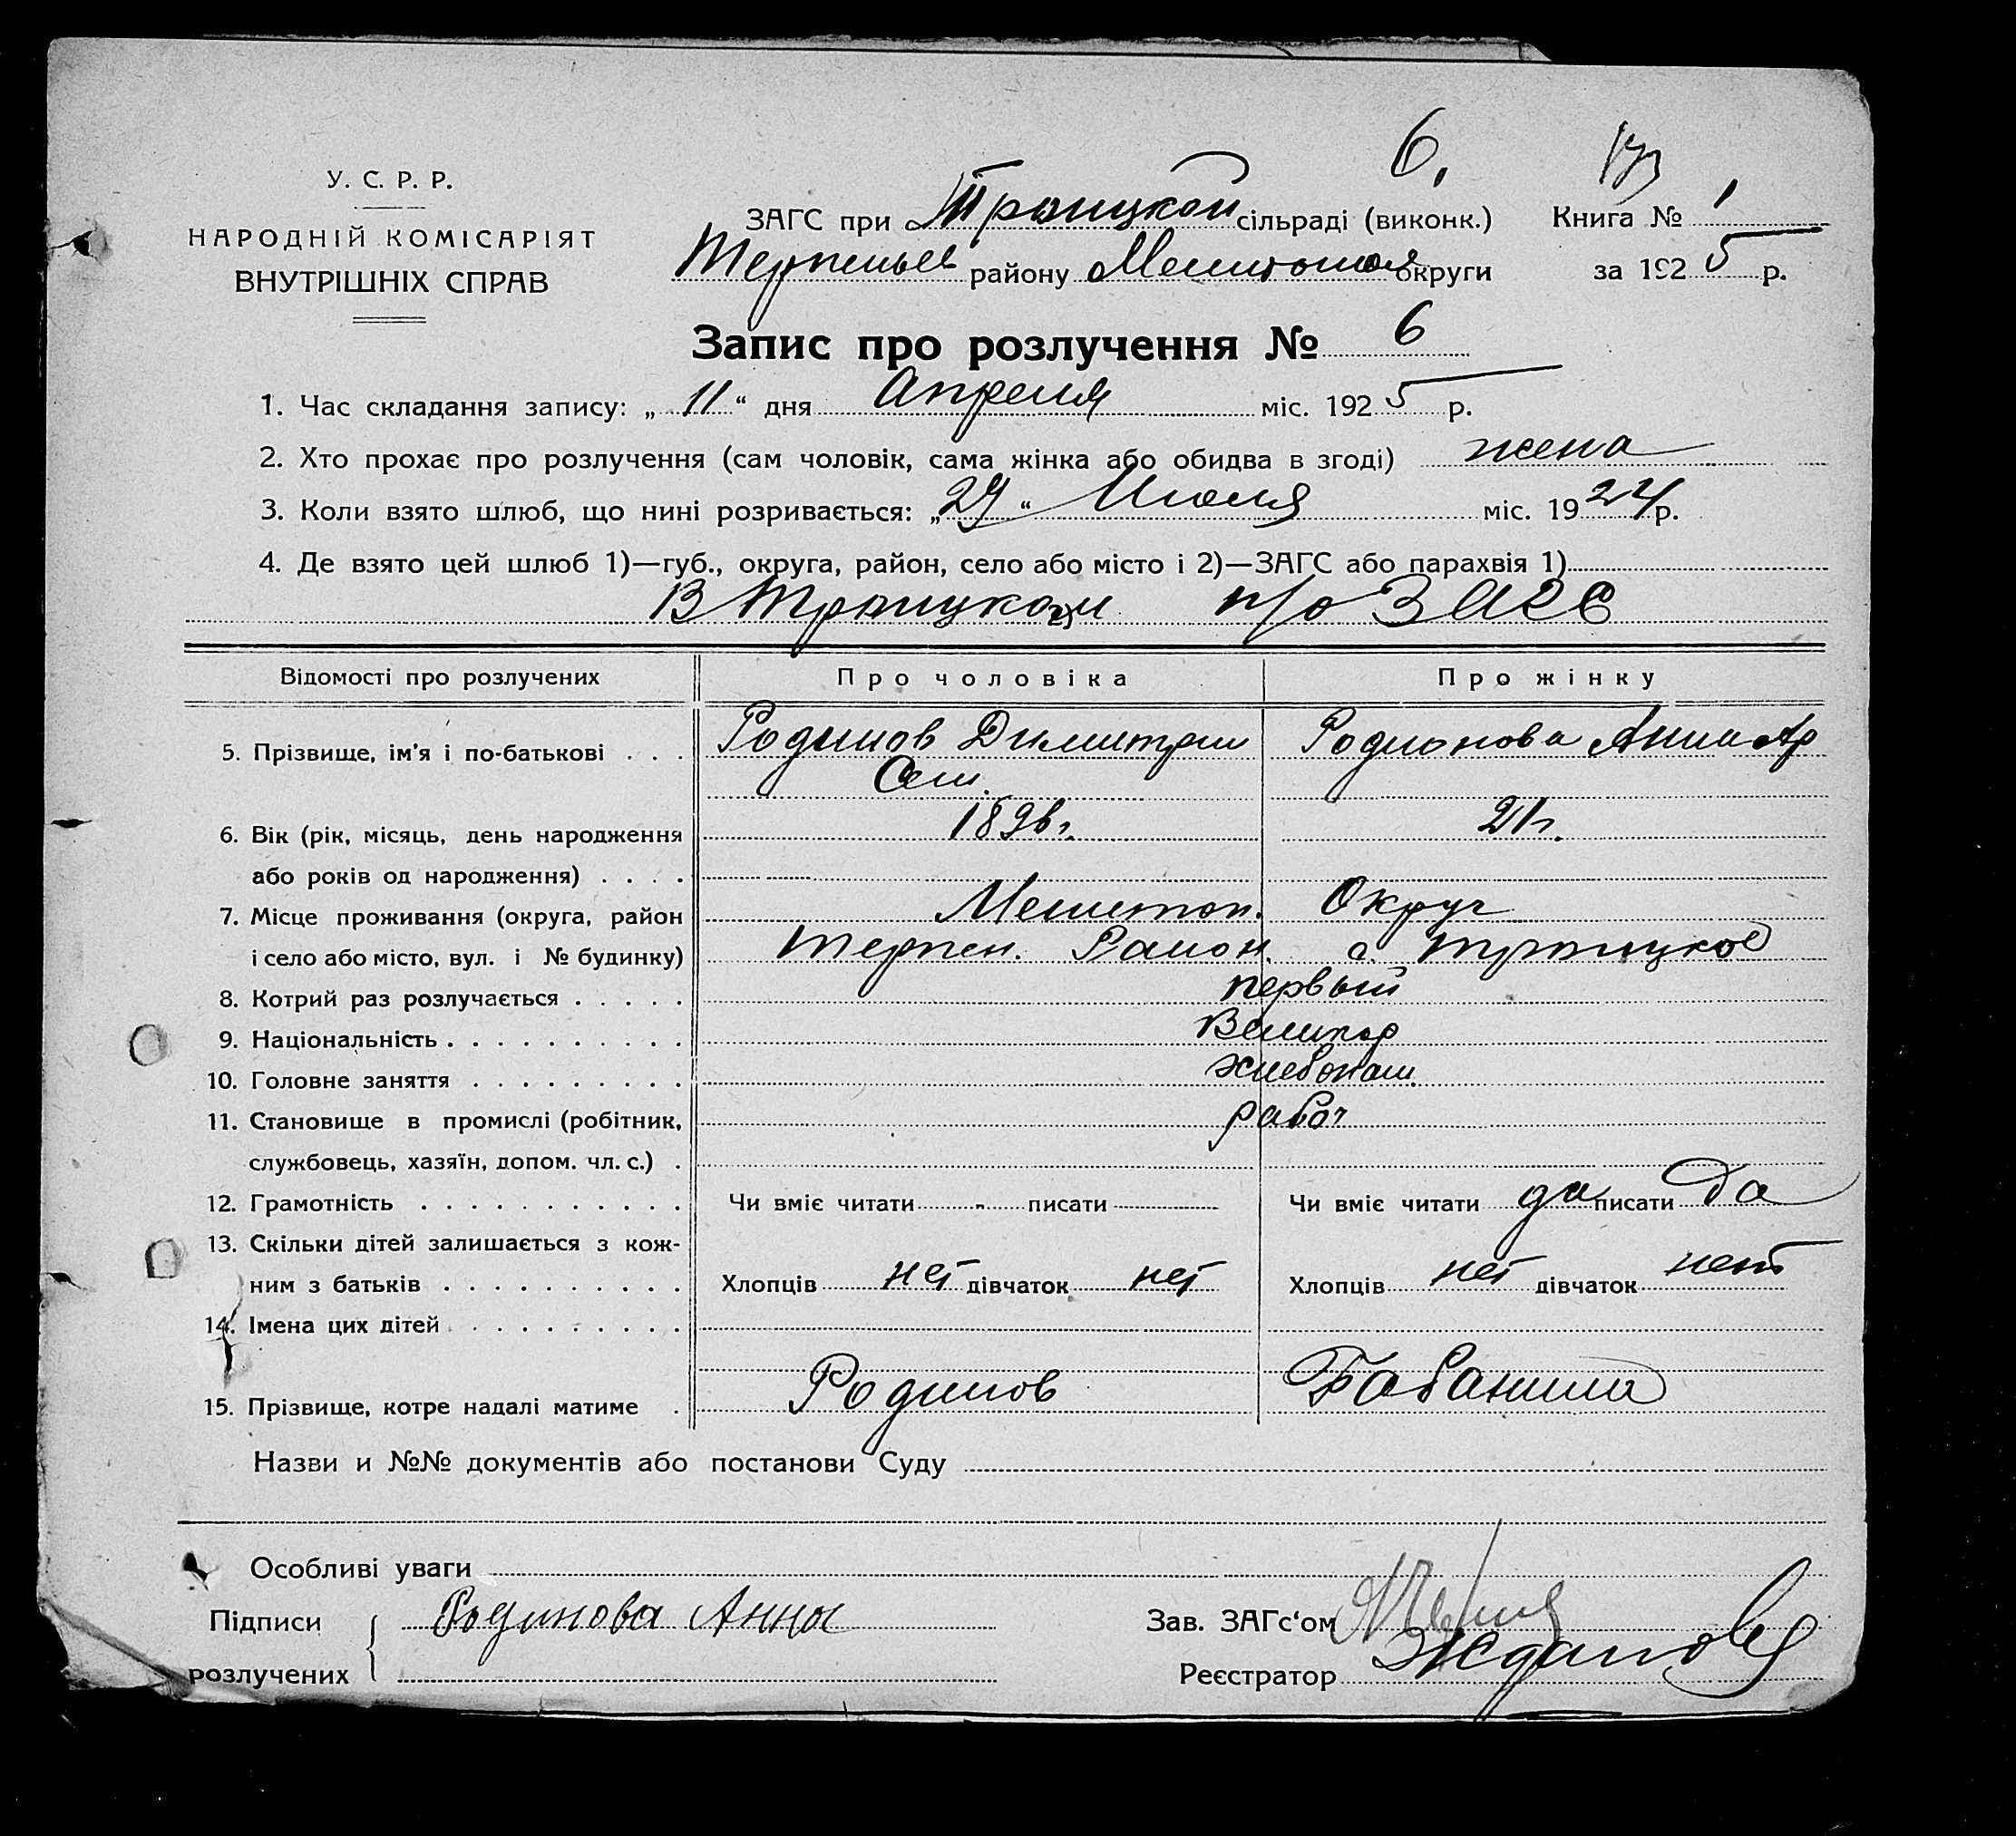 6. 173
У. С. Р. Р.
НАРОДНІЙ КОМІСАРІЯТ
ВНУТРІШНІХ СПРАВ
ЗАГС при Троицкой сільраді (виконк.) Книга № 1
Терпеньев району Мелитопол округи за 1925 р.
Запис про розлучення № 6
1. Час складання запису: „ 11 “ дня Апреля міс. 1925 р.
2. Хто прохає про розлучення (сам чоловік, сама жінка або обидва в згоді) жена
3. Коли взято шлюб, що нині розривається: „ “ Июля міс. 1924 р.
4. Де взято цей шлюб 1)—губ., округа, район, село або місто і 2)—ЗАГС або парахвія 1)
В Троицком 2) п/о ЗАГС
Відомості про розлучених Про чоловіка Про жінку
5. Прізвище, ім'я і по-батькові . . . Родинов Димитрии Родионова Анна Ар
Сем.
6. Вік (рік, місяць, день народження 1896 г. 21 г.
або років од народження) . . . .
7. Місце проживання (округа, район Мелитоп. Округ
і село або місто, вул. і № будинку) Терпен. Раион. с. Троицкое
8. Котрий раз розлучається . . . . . первый
9. Національність . . . . . . . . . . Великор
10. Головне заняття . . . . . . . . . хлебопаш.
11. Становище в промислі (робітник, рабоч
службовець, хазяїн, допом. чл. с.) .
12. Грамотність . . . . . . . . . . . Чи вміє читати - писати Чи вміє читати да писати Да
13. Скільки дітей залишається з кож-
ним з батьків . . . . . . . . . . Хлопців нет дівчаток нет Хлопців нет дівчаток нет
14. Імена цих дітей . . . . . . . . .
15. Прізвище, котре надалі матиме . Родинов Бабанина
Назви и №№ документів або постанови Суду
Особливі уваги
Підписи Родинова Анна Зав. ЗАГс‘ом
розлучених Реєстратор Жданов